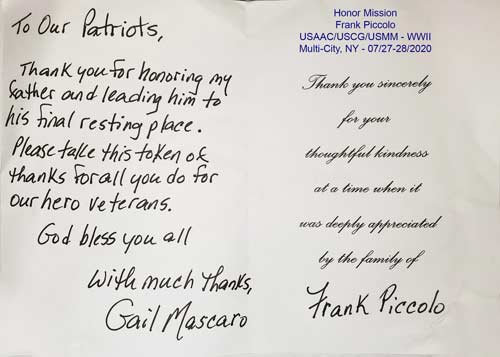 To Our Patriots,
Thank you for honoring my
father and leading him to
his final resting place.
Please take this token of
thanks for all you do for
our hero veterans.
God bless you all
With much thanks,
Gail Mascaro
Honor Mission
Frank Piccolo
USAAC/USCG/USMM - WWII
Multi-City, NY - 07/27-28/2020
Thank you sincerely
for your
thoughtful kindness
at a time when it
was deeply appreciated
by the family of
Frank Piccolo